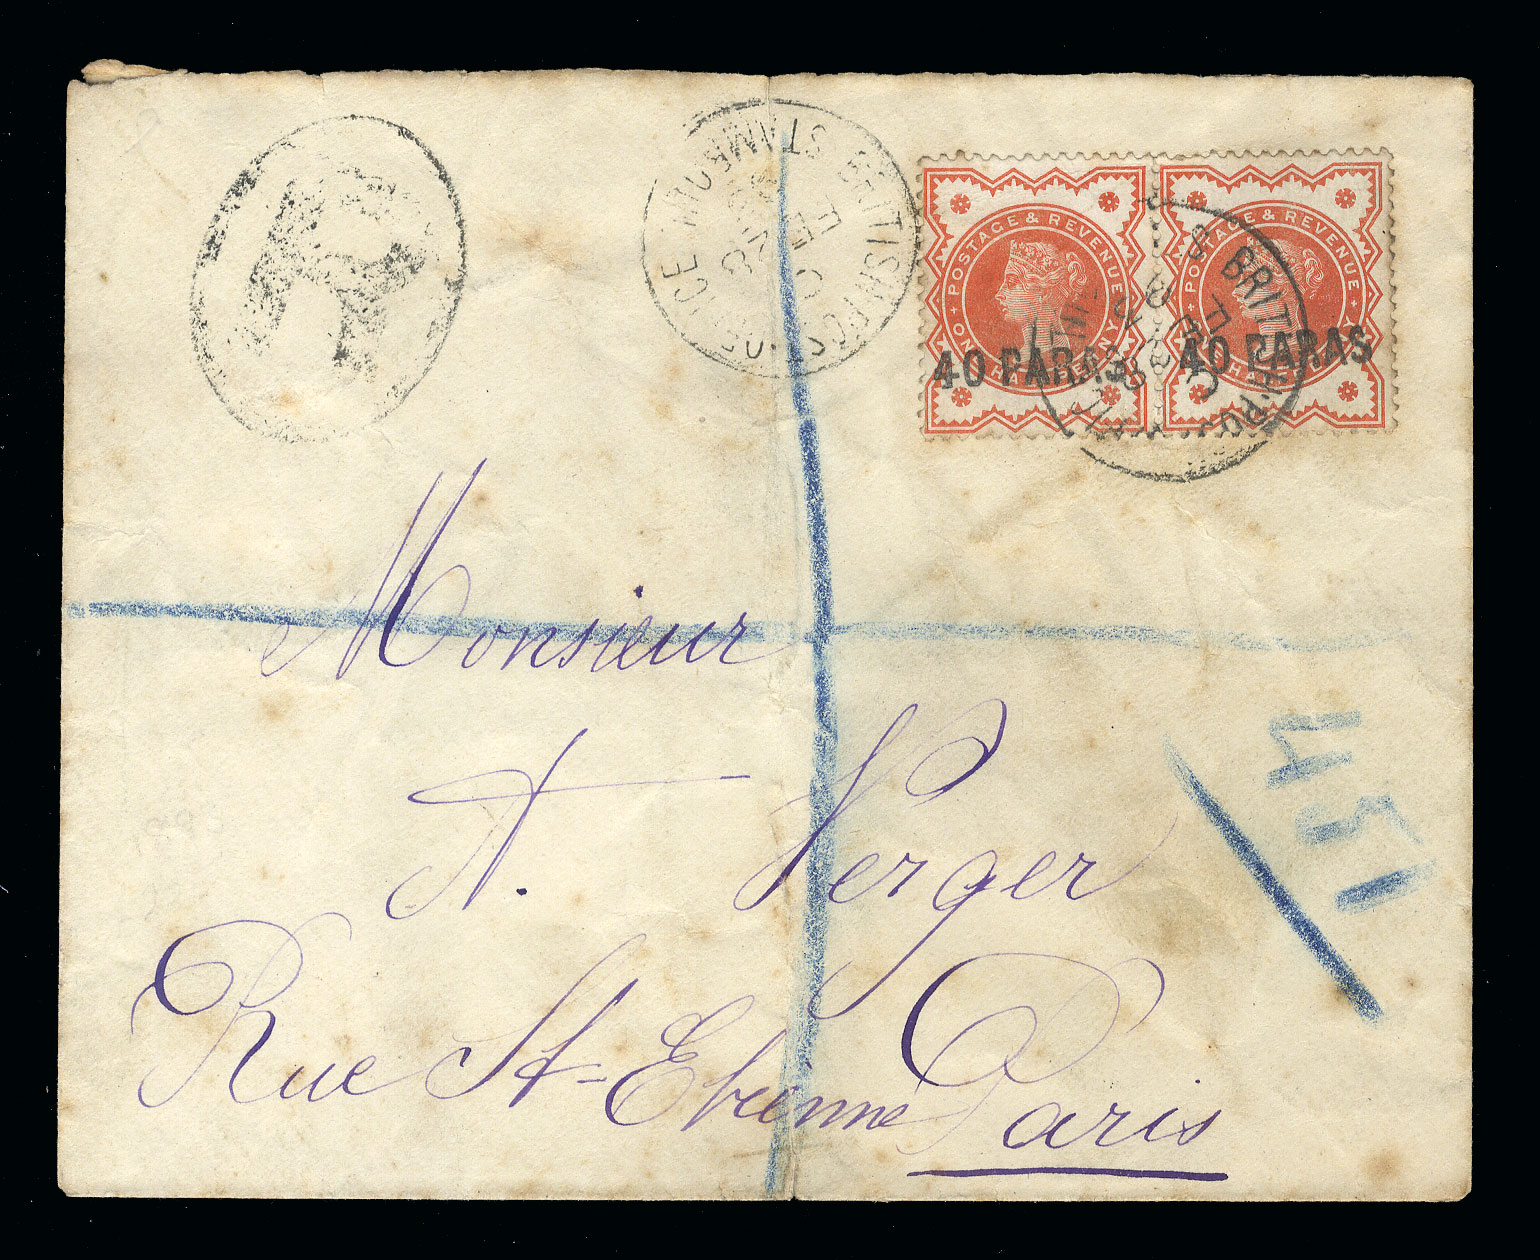 R
BRITISH POST OFFICE
STAMBOUL
POSTAGE & REVENUE
ONE HALFPENNY
40 PARAS
POSTAGE & REVENUE
ONE HALFPENNY
40 PARAS
BRITISH POST
Monsieur
A. Verger
Rue St-Etienne
Paris
451